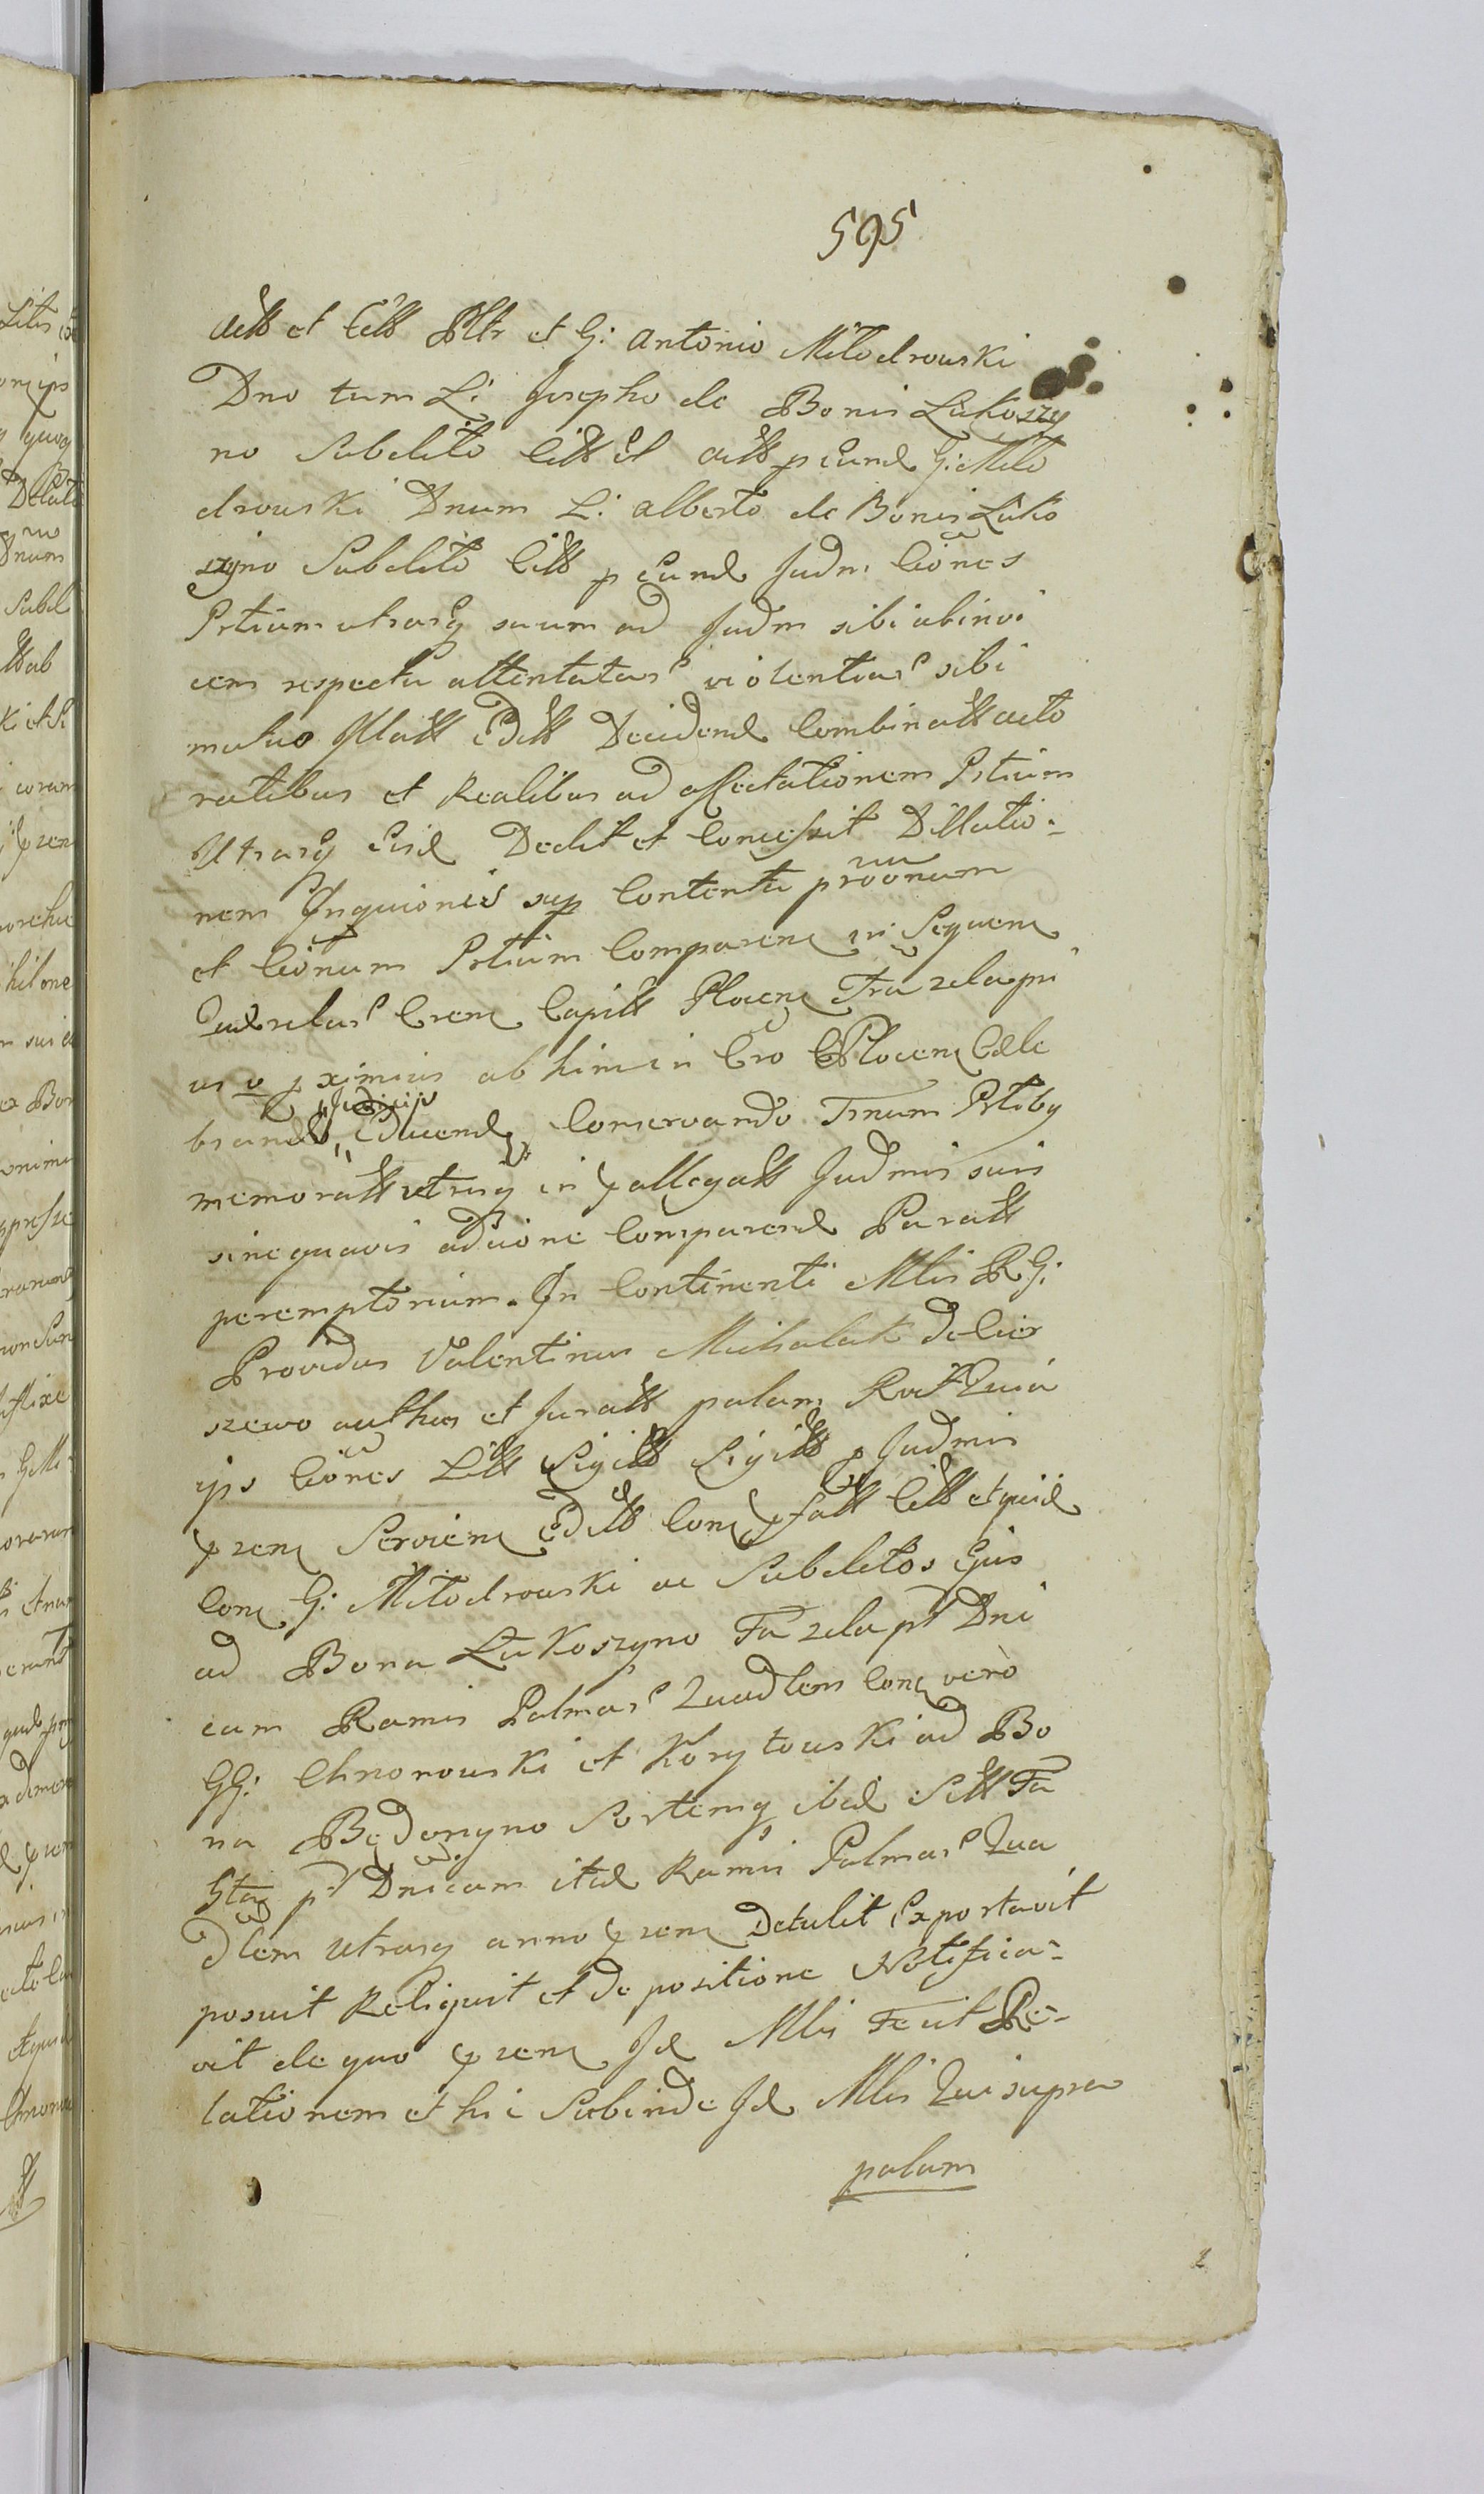 595
actt et Citt Mltr et G: Antonio Młodrowski
Dno tum L: Josepho de Bonis Łukoszy
no Subdito Citt et actt p Eund G: Mło
drowski Dnum L: Alberto de Bonis Łuko
szyno Subdito Citt p Eund Judm Ciones
Prtium utrarq suum ad Judm sibi abinvi
cem respectu attentatar violentiar sibi
mutuo Illatt Editt Decidend Combinatt acto
ratibus et Realibus ad affectationem Prtium
Utrarq Eisd Dedit et Concessit Dillatio-
nem Inquionis sup Contentu pronum
et Cionum Prtium Comparen in Sequen
Querelar Cren Capitt Plocen Fra 2da pri
us v pximius ab hinc in Cro Plocen Cele
brand Judicijs Educend Conservando Trnum Prtibq
memoratt utrisq in pallegatt Judmis suis
sine quavis adcione Comparend Paratt
peremptorium. In Continenti Mlis RG:
Providus Valentinus Michalak de Cier
szewo authus et Juratt palam Rct Quia
ips Ciones Litt Sigitt Sigitt p Judmin
pzen Servien Editt Con pfatt Citt et quid
Con G: Młodrowski ac Subditos Ejus
ad Bona Łukoszyno Fa 2da pt Dni
cam Ramis Palmar Quadlem Con vero
GG: Chronowski et Korytowski ad Bo
na Będorzyno Sortemq ibid Sitt Fa
Sta pt Dnicam itid Ramis Palmar Qua
dlem utrasq anno pzen Detulit Exportavit
posuit Reliquit et de positione Notifica-
vit de quo pzen Id Mlis Fecit Re-
lationem et hic Subinde Id Mlis Qui supra
palam